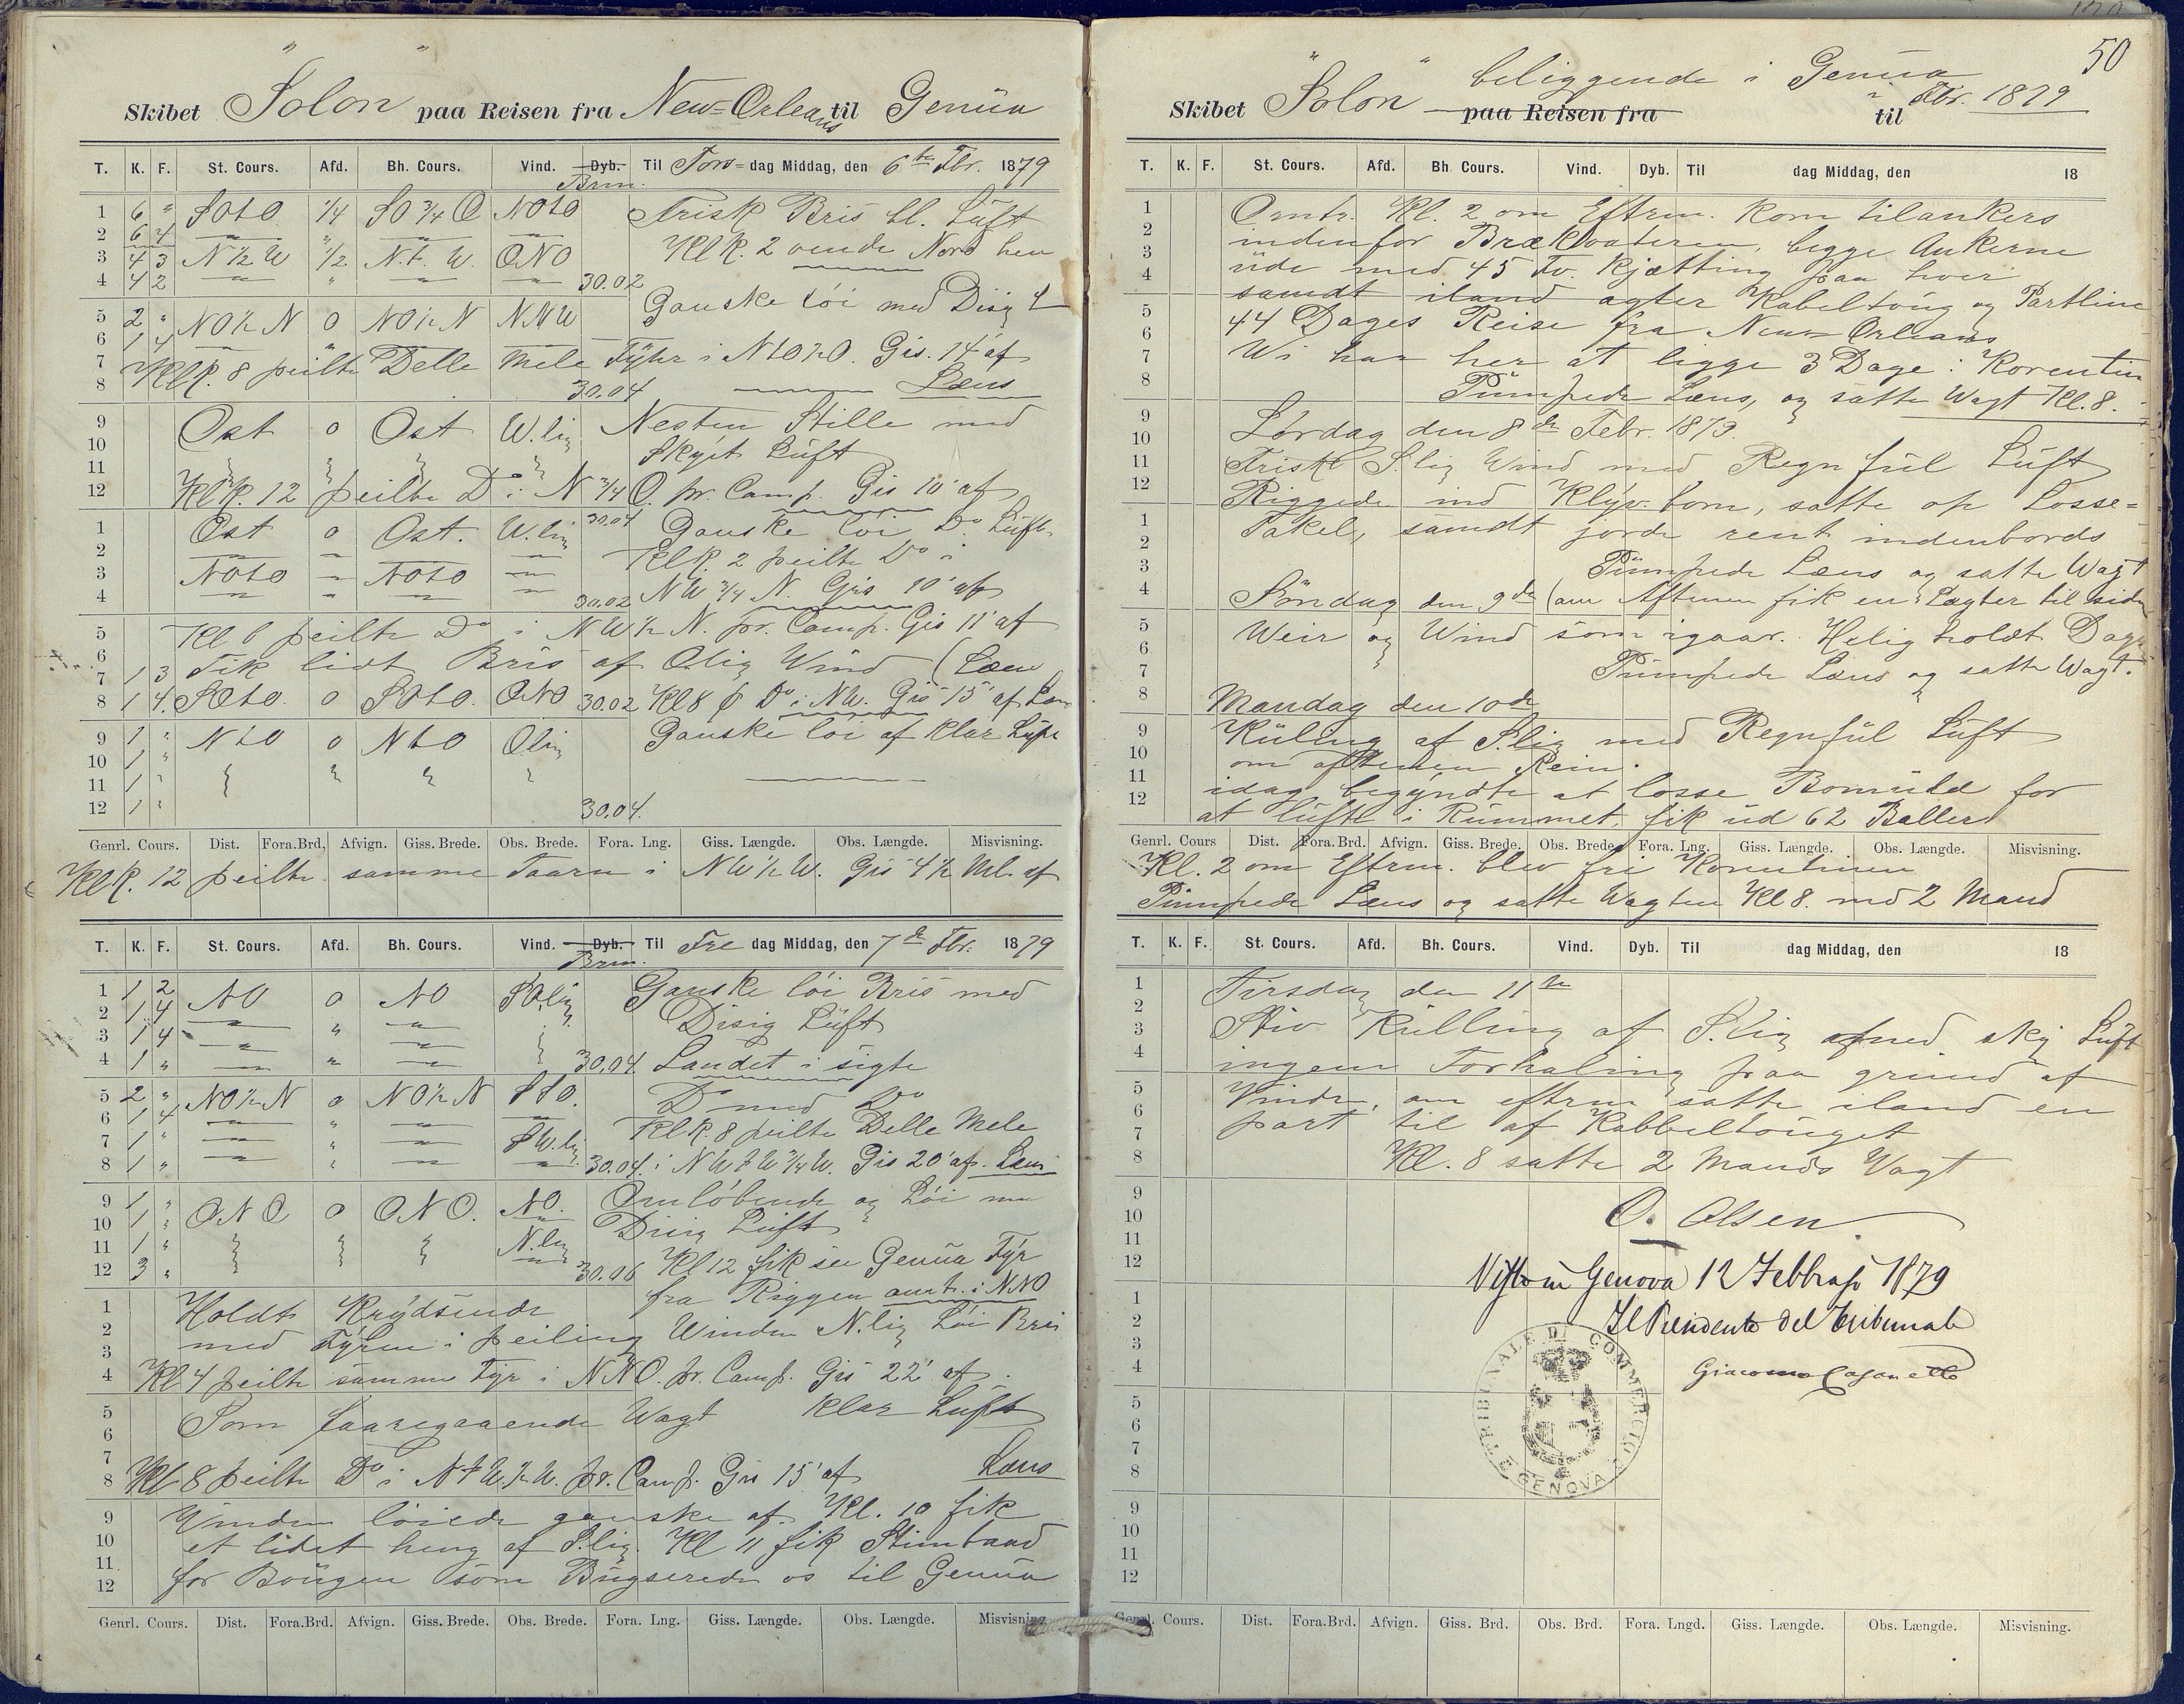 Skibet "Solon" paa Reisen fra New-Orleans til Genüa
T. K. F. St. Cours. Afd. Bh. Cours. Vind. Dyb. Brm. Til Tors-dag Middag, den 6te Fbr. 1879
1 6 " SOtO 1/4 SO 3/4 O NOtO Frisk Bris bl. Lüft
2 6 4 Kl K. 2 vende Nord hen
3 4 3 N 1/2 W 1/2 N.t. W. ONO
4 4 2 " 30.02
5 2 " NO 1/2 N 0 NO 1/2 N NNW Ganske løi med Disig
6 1 4
7 Kl K. 8 peilte Delle Mele Fÿhr i NtO 1/2 O. Gis. 14' af
8 30.04 Læns
9 Ost 0 Ost W.lig Nesten Stille med
10 Skÿet Lüft
11
12 Kl K. 12 peilte Do i N 3/4 O. pr. Comp. Gis 10' af
30.04
1 Ost 0 Ost. W.lig Ganske løi Do Lüft
2 Kl K. 2 peilte Do i
3 NOtO " NOtO NW 3/4 N. Gis 10' af
4 30.02
5 Kl. 6 peilte Do i NW 1/2 N. pr. Comp. Gis 11' af
6
7 1 3 Fik lidt Bris af Olig Wind (Læns
8 1 4. SOtO. 0 SOtO. ONO 30.02 Kl 8 p Do i NW. Gis 15' af Læns
9 1 " NtO 0 NtO Olig Ganske løi af klar Lüft
10 1 "
11 1 "
12 1 " 30.04.
Genrl. Cours. Dist. Fora.Brd, Afvign. Giss. Brede. Obs. Brede. Fora. Lng. Giss. Længde. Obs. Længde. Misvisning.
Kl K. 12 peilte samme Taarn i NW 1/2 W. Gis 4 1/2 Ml. af
T. K. F. St. Cours. Afd. Bh. Cours. Vind. Dyb. Brm. Til Fre dag Middag, den 7de Fbr. 1879
1 1 2 NO 0 NO SO.lig Ganske løi Bris med
2 1 4 Disig Lüft
3 1 4 "
4 1 " " 30.04. Landet i sigte
5 2 " NO 1/2 N 0 NO 1/2 N StO. Do med Do
6 1 4 " Kl K. 8 peilte Delle Mele
7 1 " " SW.lig
8 1 " 30.04. i NWtW 3/4 W. Gis 20' af. Læns
9 1 " ONO 0 ONO. NO. Omløbende og Løi med
10 1 " Disig Lüft
11 1 " N.lig
12 3 " 30.06 Kl 12 fik see Genüa Fÿr
fra Riggen omtr. i NNO
1 Holdt Krÿdsende
2 med Fÿren i peiling Winden N.lig Løi Bris
3
4 Kl 4 peilte samme Fyr i NNO. pr. Comp. Gis 22' af.
5 Som foaregaaende Wagt klar Lüft
6
7
8 Kl 8 peilte Do i NtW. 1/2 W. pr. Comp. Gis 15' af Læns
9 Vinden løiede ganske af. Kl. 10 fik
10 et lidet heng af S.lig. Kl 11 fik Stimbaad
11 for Boügen som Bügserede os til Genüa
12
Genrl. Cours. Dist. Fora.Brd. Afvign. Giss. Brede. Obs. Brede. Fora. Lng. Giss. Længde. Obs. Længde. Misvisning
50
Skibet "Solon" beliggende i Genüa
paa Reisen fra til Fbr. 1879
T. K. F. St. Cours. Afd. Bh. Cours. Vind. Dyb. Til dag Middag, den 18
1 Omtr. Kl. 2 om Eftrm. kom tilankers
2 indenfor Brækvateren, begge Ankerne
3 üde med 45 Fv. kjætting paa hver
4 samdt iland agter Kabeltoüg og Partline
5 44 Dages Reise fra New Orleans
6 Wi har her at ligge 3 Dage i Korentin
7 Pümpede Læns, og satte Wagt Kl. 8.
8
9 Lørdag den 8de Febr. 1879.
10 Frisk S.lig Wind med Regn fül Lüft
11 Riggede ind Klÿv. bom, satte op Losse=
12 Takel, samdt jorde rent indenbords
1
2 Pümpede Læns og satte Wagt
3 Søndag den 9de (om Aftenen fik en Lægter til siden
4
5 Weir og Wind som igaar. Helig holdt Dagen
6 Pümpede Læns og satte Wagt.
7
8 Mandag den 10de
9 Küling af S.lig med Regnfül Lüft
10 om aftenen Rein.
11 idag begÿndte at losse Bomüld for
12 at lüfte i Rümmet, fik üd 62 Baller
Genrl. Cours Dist. Fora.Brd. Afvign. Giss. Brede. Obs. Brede. Fora. Lng. Giss. Længde. Obs. Længde. Misvisning.
Kl. 2 om Eftrm. blev fri Korentinen
Pümpede Læns og satte Wagten Kl 8. med 2 Mand
T. K. F. St. Cours. Afd. Bh. Cours. Vind. Dyb. Til dag Middag, den 18
1 Tirsdag den 11te
2 Stiv Külling af S.lig med skÿ Lüft
3 ingen Forhaling paa gründ af
4 Vinden, om eftrm satte iland en
5 part til af Kabbeltoüget
6 Kl. 8 satte 2 Mands Vagt
7
8
9 O. Olsen
10
11
12 Visto in Genova 12 Febbrajo 1879
1
2 Il Presidente del Tribunale
3
4 Giacomo
5
6
7
8
9
10
11
12
TRIBUNALE DI COMMERCIO GENOVA
Genrl. Cours. Dist. Fora.Brd. Afvign. Giss. Brd. Obs. Brd. Fora. Lngd. Giss. Længde. Obs. Længde. Misvisning.